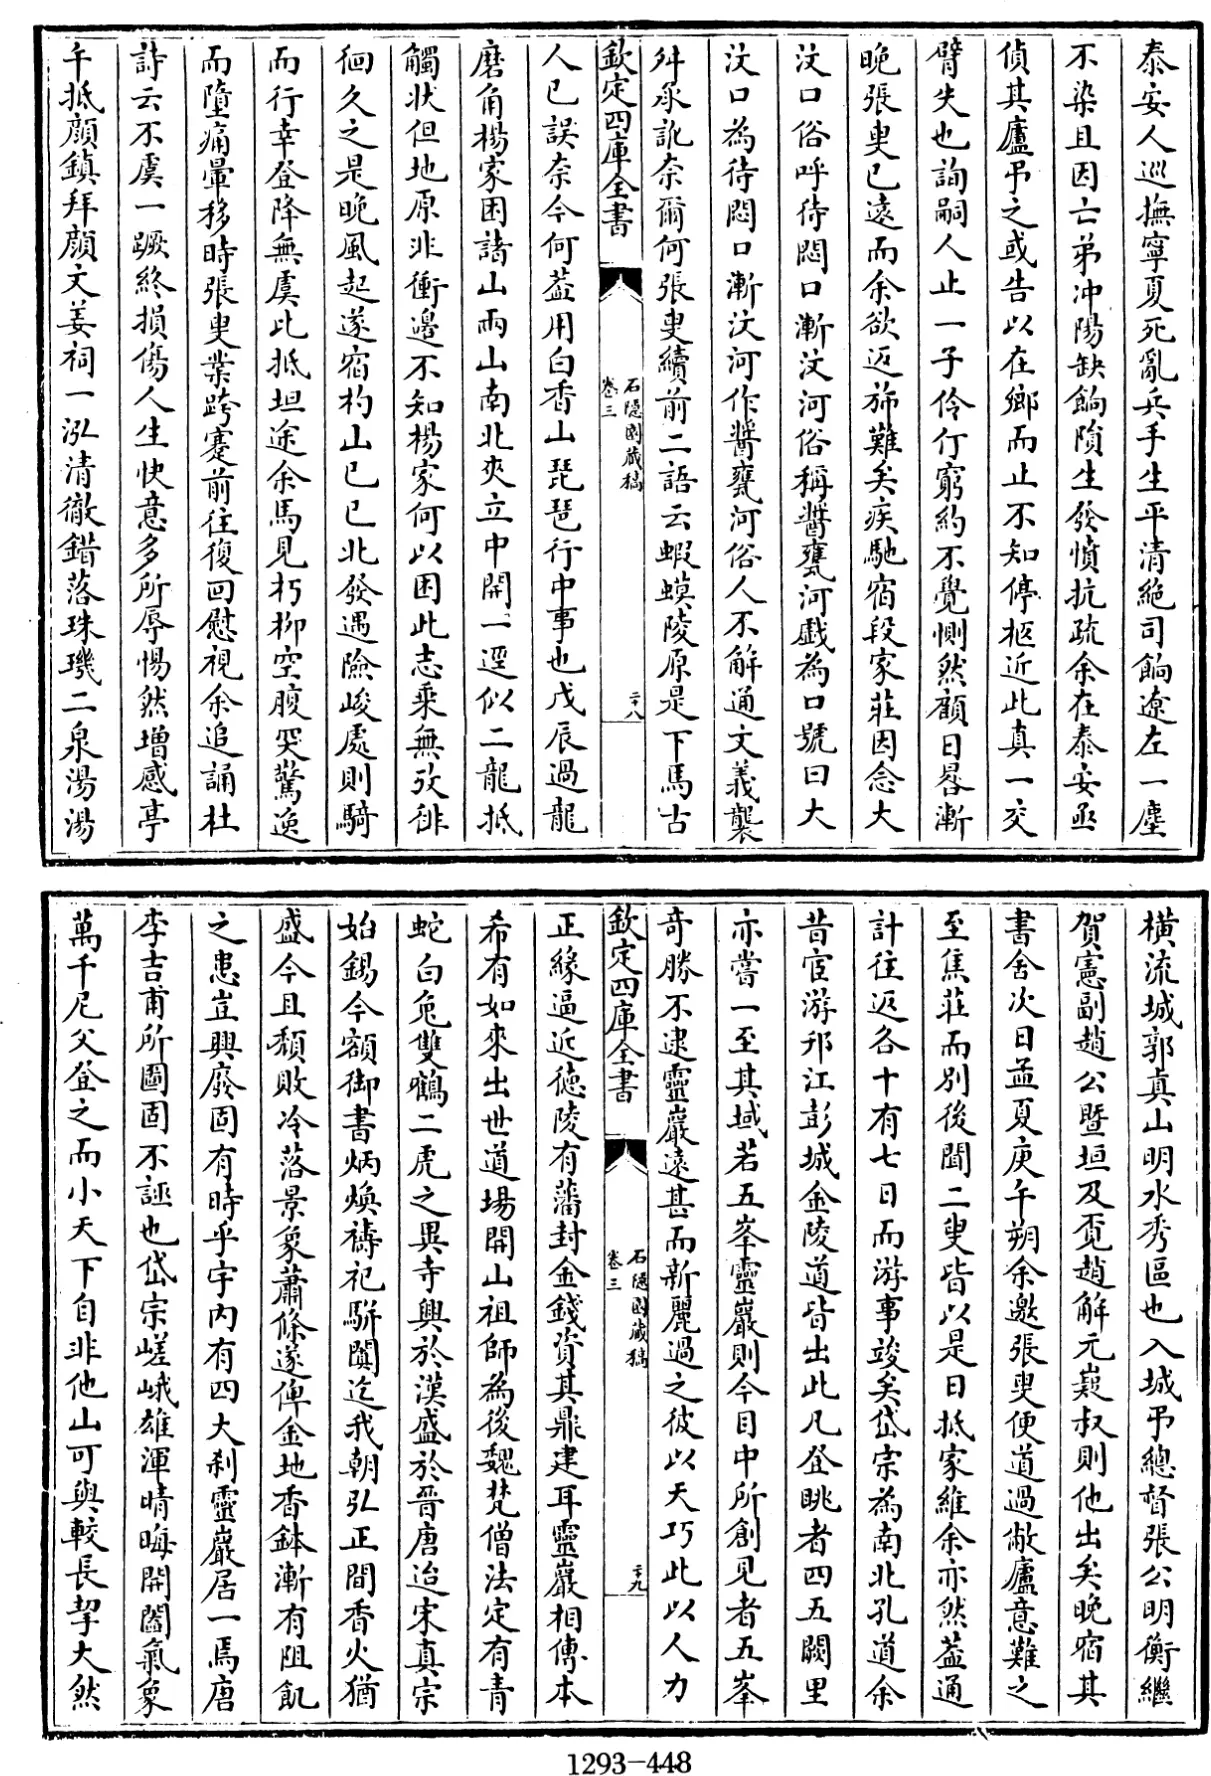 泰安人巡撫寧夏死亂兵手生平清絶司餉遼左一塵
不染且因亡弟冲陽缺餉隕生發憤抗疏余在泰安亟
偵其廬弔之或告以在鄉而止不知停柩近此真一交
臂失也詢嗣人止一子伶仃窮約不覺惻然顧日晷漸
晚張叟已遠而余欲返斾難矣疾馳宿段家莊因念大
汶口俗呼待悶口漸汶河俗稱醬甕河戲為口號曰大
汶口為待悶口漸汶河作醬甕河俗人不解通文義襲
舛承訛奈爾何張叟續前二語云蝦蟆陵原是下馬古
欽定四庫全書
石隱園藏稿
卷三
二十八
人已誤奈今何葢用白香山琵琶行中事也戊辰過龍
磨角楊家困諸山兩山南北夾立中開一逕似二龍抵
觸狀但地原非衝邊不知楊家何以困此志乘無攷徘
徊久之是晚風起遂宿杓山已巳北發遇險峻處則騎
而行幸登降無虞比抵坦途余馬見朽柳空腹突驚逸
而墮痛暈移時張叟業跨蹇前往復回慰視余追誦杜
詩云不虞一蹶終損傷人生快意多所辱惕然增感亭
午抵顔鎮拜顔文姜祠一泓清徹錯落珠璣二泉湯湯
橫流城郭真山明水秀區也入城弔總督張公明衡繼
賀憲副趙公暨垣及覔趙解元嶷叔則他出矣晚宿其
書舍次日孟夏庚午朔余邀張叟便道過敝廬意難之
至焦莊而別後聞二叟皆以是日抵家維余亦然葢通
計往返各十有七日而游事竣矣岱宗為南北孔道余
昔宦游邗江彭城金陵道皆出此凡登眺者四五闕里
亦嘗一至其域若五峯靈巖則今目中所創見者五峯
奇勝不逮靈巖遠甚而新麗過之彼以天巧此以人力
欽定四庫全書
石隱園藏稿
卷三
二十九
正緣逼近德陵有藩封金錢資其鼎建耳靈巖相傳本
希有如來出世道場開山祖師為後魏梵僧法定有青
蛇白兔雙鶴二虎之異寺興於漢盛於晉唐迨宋真宗
始錫今額御書炳煥禱祀駢闐迄我朝弘正間香火猶
盛今且頹敗冷落景象蕭條遂俾金地香鉢漸有阻飢
之患豈興廢固有時乎宇内有四大刹靈巖居一焉唐
李吉甫所圖固不誣也岱宗嵯峨雄渾晴晦開闔氣象
萬千尼父登之而小天下自非他山可與較長挈大然
1293-448